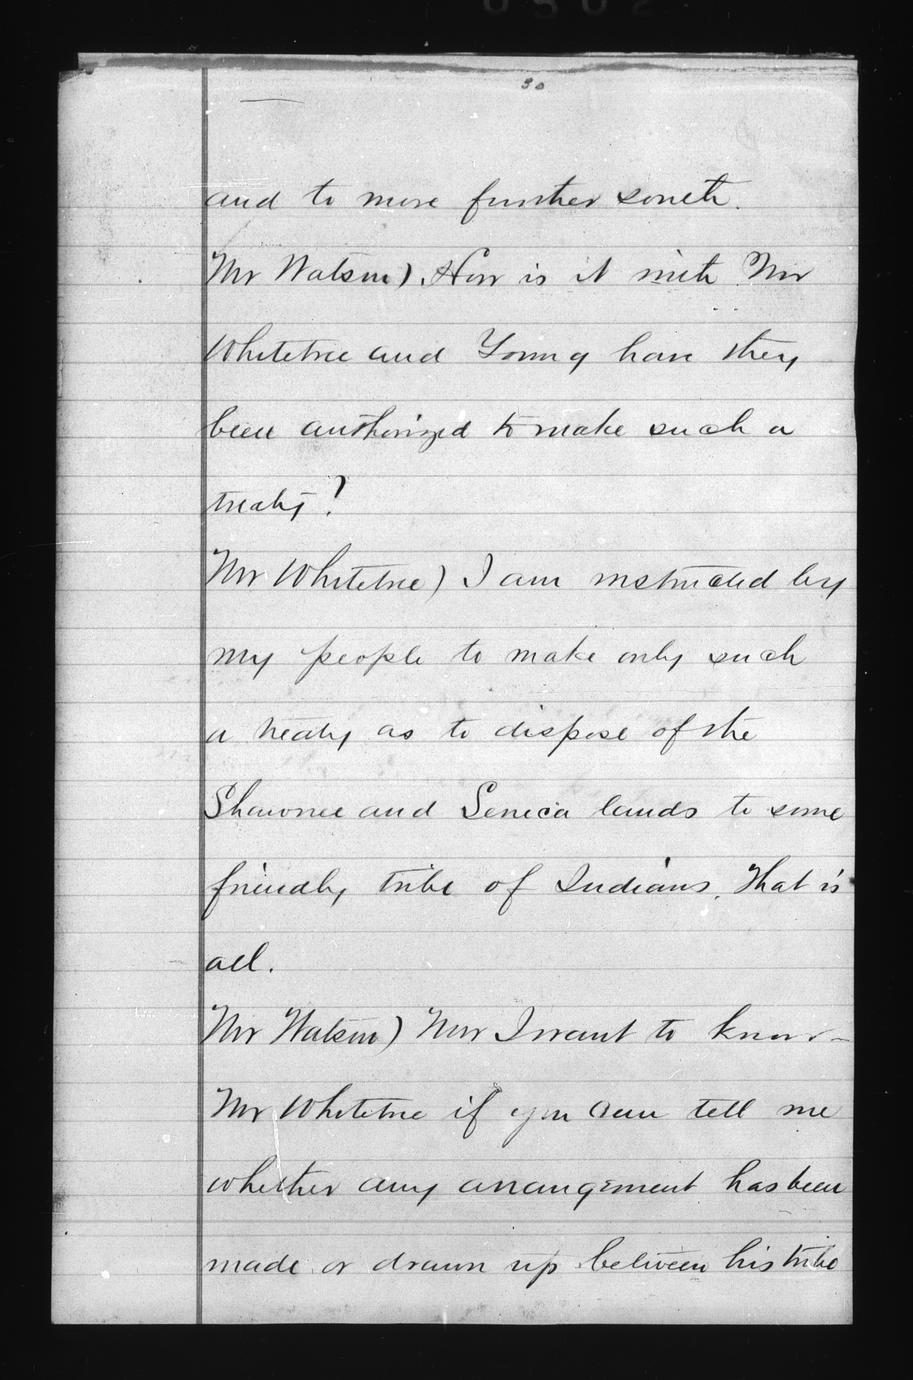 30
and to move further south.
Mr Watson) How is it with Mr
Whitetree and Young have they
been authorized to make such a
treaty?
Mr Whitetree) I am instructed by
my people to make only such
a treaty as to dispose of the
Shawnee and Seneca lands to some
friendly tribe of Indians, That is
all.
Mr Watson) Now I want to know
Mr Whitetree if you can tell me
whether any arrangement has been
made or drawn up between his tribe